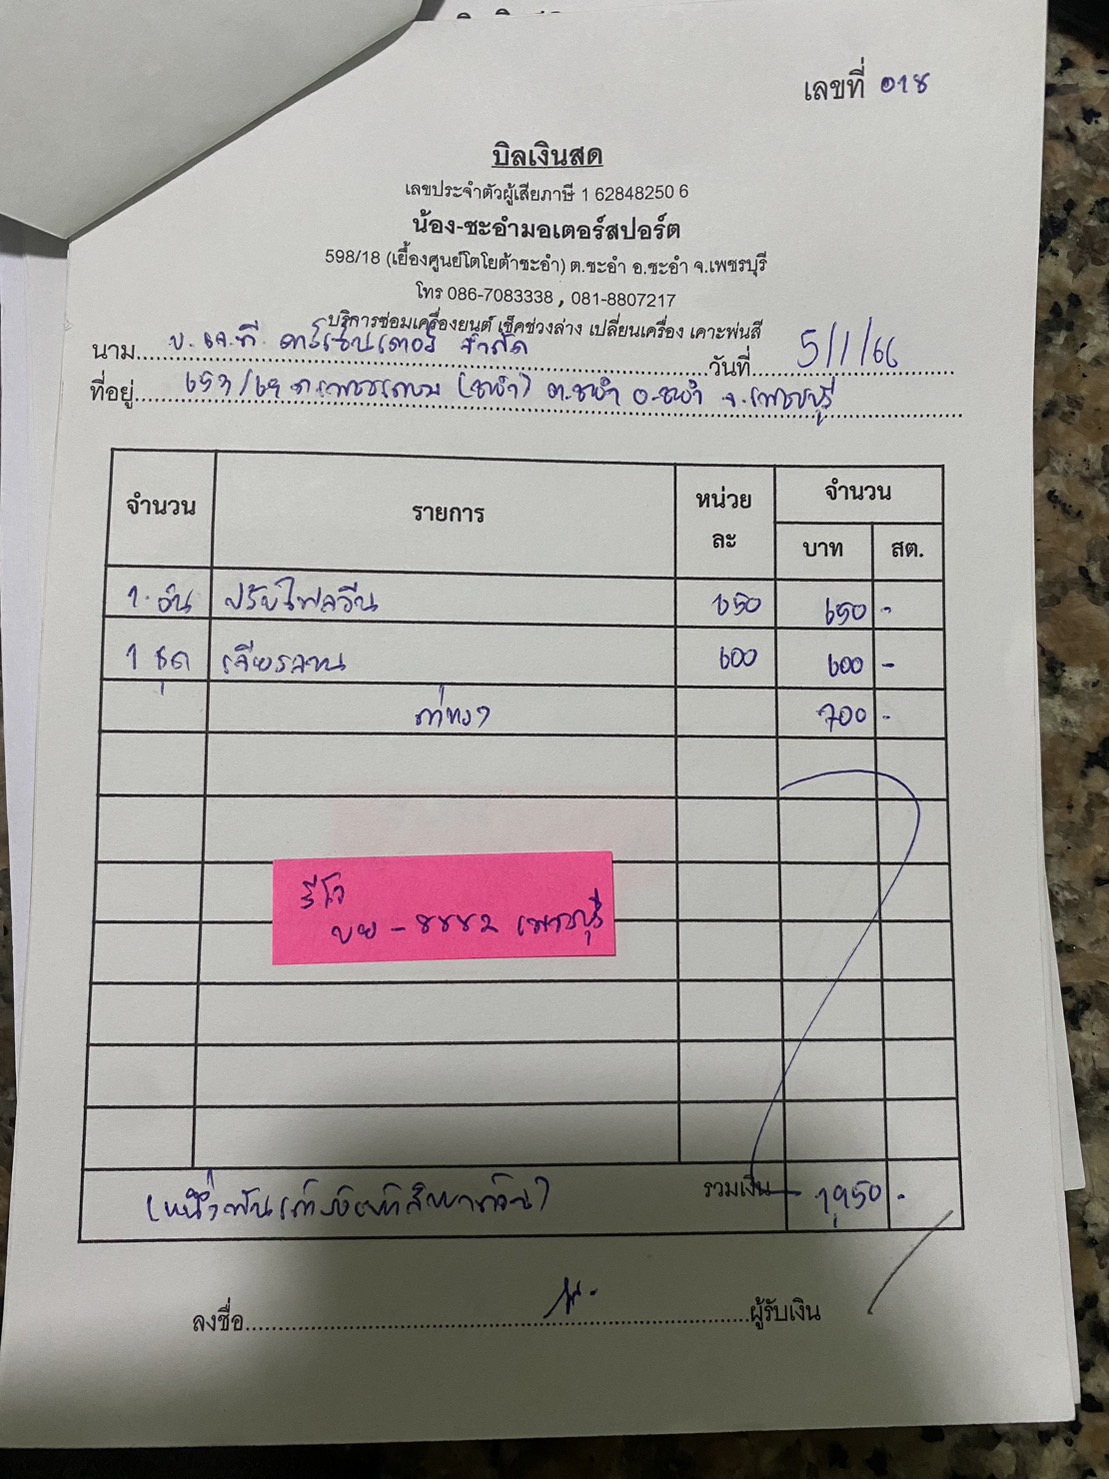 เลขที่ 018
บิลเงินสด
เลขประจำตัวผู้เสียภาษี 1 62848250 6
น้อง-ชะอำมอเตอร์สปอร์ต
598/18 (เยื้องศูนย์โตโยต้าชะอำ) ต.ชะอำ อ.ชะอำ จ.เพชรบุรี
โทร 086-7083338 , 081-8807217
บริการซ่อมเครื่องยนต์ เช็คช่วงล่าง เปลี่ยนเครื่อง เคาะพ่นสี
นาม บ. เจ.ที จำกัด วันที่ 5/1/66
ที่อยู่ ถ.เพชรเกษม (ชะอำ) ต.ชะอำ อ.ชะอำ จ.เพชรบุรี
จำนวน รายการ หน่วยละ จำนวน
บาท สต.
1 อัน ปรับไฟลวีน 650 650 -
1 ชุด เจียรจาน 600 600 -
ค่าแรง 700 -
รีโว่
บย - 8882 เพชรบุรี
(หนึ่งพันเก้าร้อยห้าสิบบาทถ้วน) รวมเงิน 1,950 -
ลงชื่อ ผู้รับเงิน